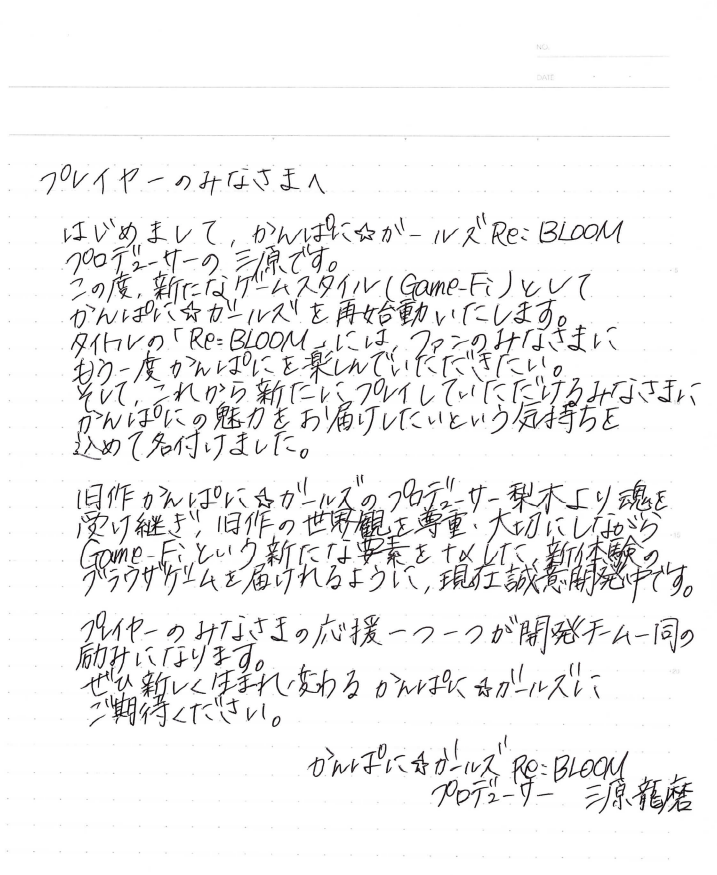 NO.
DATE
プレイヤーのみなさまへ
はじめまして、かんぱに☆ガールズRe:BLOOM
プロデューサーの三原です。
この度、新たなゲームスタイル(Game-Fi)として
かんぱに☆ガールズを再始動いたします。
タイトルの「Re:BLOOM」には、ファンのみなさまに
もう一度かんぱにを楽しんでいただきたい。
そして、これから新たにプレイしていただけるみなさまに
かんぱにの魅力をお届けしたいという気持ちを
込めて名付けました。
旧作かんぱに☆ガールズのプロデューサー梨木より魂を
受け継ぎ、旧作の世界観を尊重・大切にしながら
Game-Fiという新たな要素を+αした、新体験の
ブラウザゲームを届けれるように、現在誠意開発中です。
プレイヤーのみなさまの応援一つ一つが開発チーム一同の
励みになります。
ぜひ新しく生まれ変わるかんぱに☆ガールズに
ご期待ください。
かんぱに☆ガールズRe:BLOOM
プロデューサー 三原龍磨